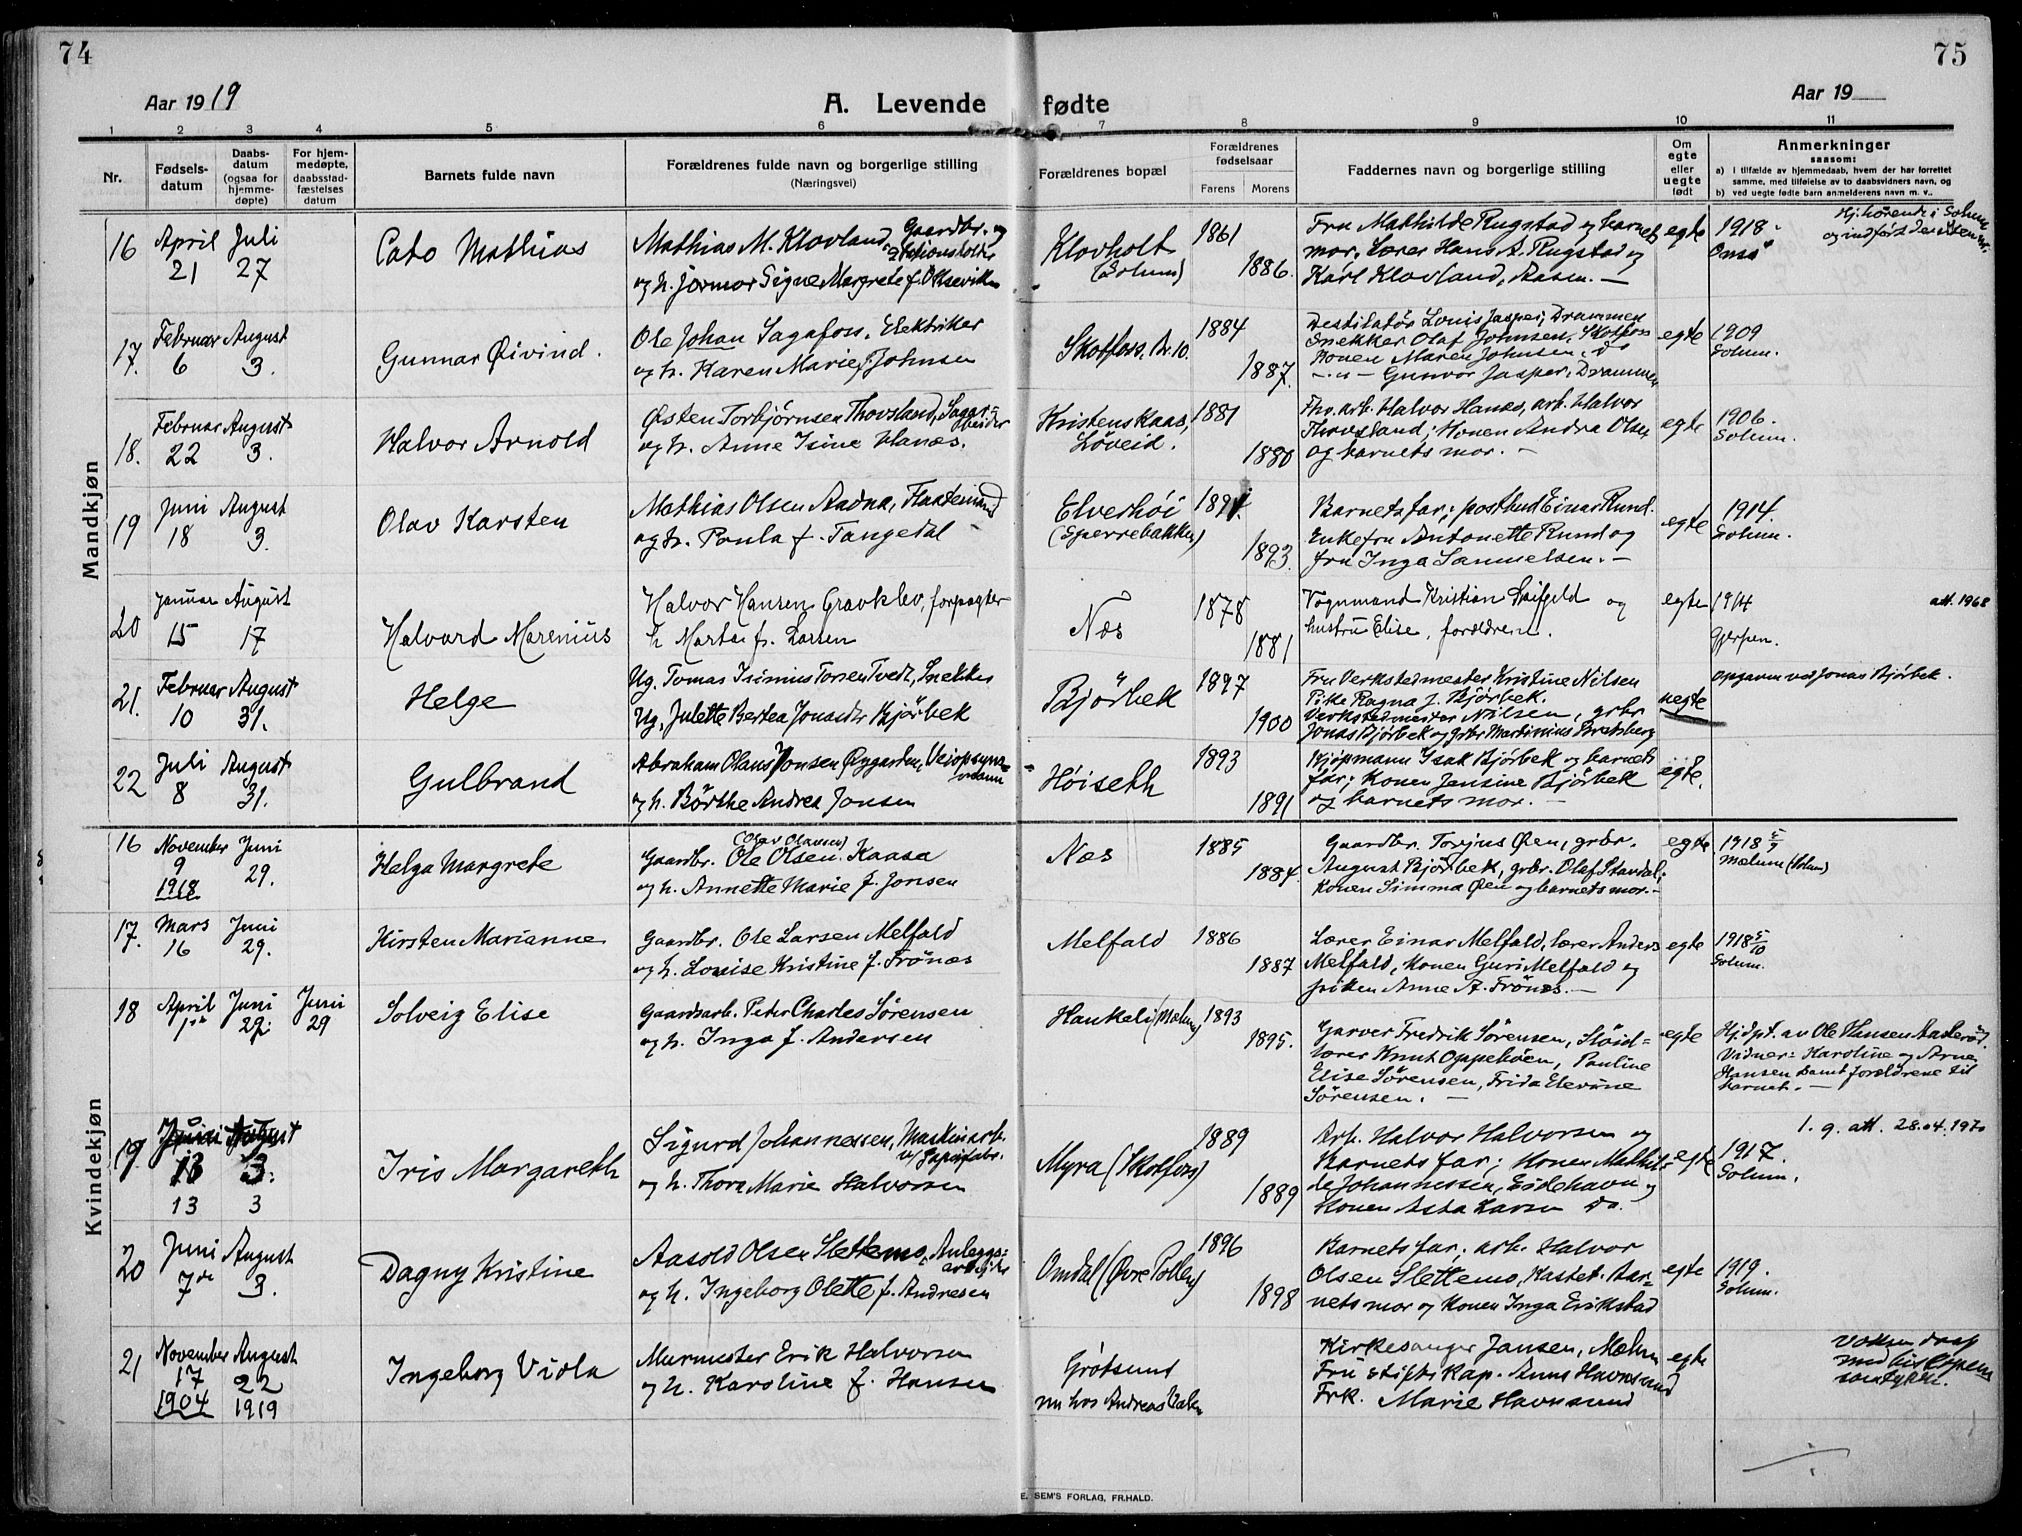 74
75
Aar 1919
A. Levende fødte
Aar 19
1 2 3 4 5 6 7 8 9 10 11
Nr.
Fødsels-
datum
Daabs-
datum
(ogsaa for
hjemme-
døpte)
For hjem-
medøpte,
daabsstad-
fæstelses
datum
Barnets fulde navn
Forældrenes fulde navn og borgerlige stilling
(Næringsvei)
Forældrenes bopæl
Forældrenes
fødselsaar
Farens Morens
Faddernes navn og borgerlige stilling
Om
egte
eller
uegte
født
Anmerkninger
saasom:
a) i tilfælde av hjemmedaab, hvem der har forrettet
samme, med tilføielse av to daabsvidners navn, og
b) ved uegte fødte barn anmelderens navn m. v..
Mandkjøn
16 April 21 Juli 27
Cato Mathias
Mathias M. Klovland, Gaardbr. og Stationsholder
og h. jormor Signe Margrete f. Oksevik
Klovholt
(Solum)
1861
1886.
Fru Mathilde Rugstad og barnets
mor. Lærer Hans A. Rugstad og
Karl Klovland, Aasen. —
egte
1918
Hj.hørende i Solum
og indført der
17. Februar 6 August 3.
Gunnar Øivind.
Ole Johan Sagafos, Elektriker
og h. Karen Marie f. Johnsen
Skotfoss. Br. 10.
1884
1887.
Destilatør Louis Jasper, Drammen
Snekker Olaf Johnsen, Skotfoss
Konen Maren Johnsen, do
— " — Gunvor Jasper, Drammen
egte
1909
Solum.
18. Februar 22 August 3.
Halvor Arnold
Østen Torbjørnsen Thovsland, Sagarbeider
og h. Anne Isine Hanæs.
Kristenskaas,
Løveid.
1881
1880
Fhv. arb. Halvor Hanæs, arb. Halvor
Thovsland; Konen Andra Olsen
og barnets mor. —
egte
1906.
Solum.
19 Juni 18 August 3.
Olav Karsten
Mathias Olsen Aadna,
og h. Paula f. Tangedal
Elverhøi
(Sperrebakken)
1891.
1893.
Barnets far; postbud Einar Rund.
Enkefru Antonette Rund og
fru Inga Samuelsen. —
egte
1914.
Solum.
20 Januar 15 August 17
Halvard Marenius
Halvor Hansen Gravklev, forpagter
h. Marta f. Larsen
Næs
1878
1881
Vognmand Kristian Leifgeld og
hustru Elise, forældrene.
egte
1914
Gjerpen.
att. 1968
21. Februar 10 August 31.
Helge
Ug. Tomas Isimius Torsen Tvedt, Snekker
Ug. Julette Bertea Jonasdtr Bjørbek
Bjørbek
1897
1900
Fru Verkstedmester Kristine Nilsen
Pike Ragna J. Bjørbek.
Verkstedmester Nilsen, grbr
Jonas Bjørbek og grbr Martinius Bretsberg
uegte
opgaven ved Jonas Bjørbek.
22 Juli 8 August 31.
Gulbrand
Abraham Olaus Jonsen Øygarden, Veiopsynsmann
og h. Børthe Andrea Jonsen
Høiseth
1893
1891
Kjøpmann Isak Bjørbek og barnets
far; Konen Jensine Bjørbek
og barnets mor. —
egte.
Kvindekjøn
16 November 9 1918 Juni 29.
Helga Margrete
(Olav Olausen)
Gaardbr. Ole Olsen Kaasa
og h. Annette Marie f. Jonsen
Næs
1885
1884.
Gaardbr. Torjus Øen, grbr.
August Bjørbek, grbr. Olaf Stardal;
Konen Simma Øen og barnets mor. —
egte
1918 5/9
Mælum (Solum)
17. Mars 16 Juni 29.
Kirsten Marianne
Gaardbr. Ole Larsen Melfald
og h. Louise Kristine f. Frönæs
Melfald
1886
1887
Lærer Einar Melfald, lærer Anders
Melfald, Konen Guri Melfald og
piken Anne A. Frönæs. —
egte
1918 5/10
Solum.
18 April 1ste Juni 29. Juni 29
Solveig Elise
Gaardsarb. Peter Charles Sörensen
og h. Inga f. Andersen
Hankeli (Mælum)
1893
1895.
Garver Fredrik Sörensen, Slöid-
lærer Knut Oppeböen, Pauline
Elise Sörensen, Frida Elevine
Sörensen. —
egte
Hj.dpt. av Ole Hansen Aasteröd.
Vidner: Karoline og Arne
Hansen samt forældrene til
barnet. —
19. Juni 13 August 3.
13 3
Iris Margareth
Sigurd Johannessen, Maskinarb. v/ Papirfabr.
og h. Thora Marie Halvorsen
Myra (Skotfoss)
1889
1889
Arb. Halvor Halvorsen og
Barnets far; Konen Mathil-
de Johannessen, Eidehavn og
Konen Asta Larsen Do.
egte
1917.
Solum.
1. g. att. 28.04.1970
20 Juni 7de August 3.
Dagny Kristine
Aasold Olsen Slettemo, Anleggs-
arbeider
og h. Ingeborg Olette f. Andresen
Omdal (Øvre Pollen)
1896
1898
Barnets far, arb. Halvor
Olsen Slettemo, Kastet. Bar-
nets mor og Konen Inga Erikstad
egte
1919.
Solum.
21 November 17 1904 August 22 1919
Ingeborg Viola
Murmester Erik Halvorsen
og h. Karoline f. Hansen
Grötsund
nu hos Andreas
Kirkesanger Jansen, Mælum
Fru stiftskap. Anna Havnsund
Frk. Marie Havnsund
egte
voksen daap
med biskopens
samtykke.
E. SEM'S FORLAG, FR.HALD.